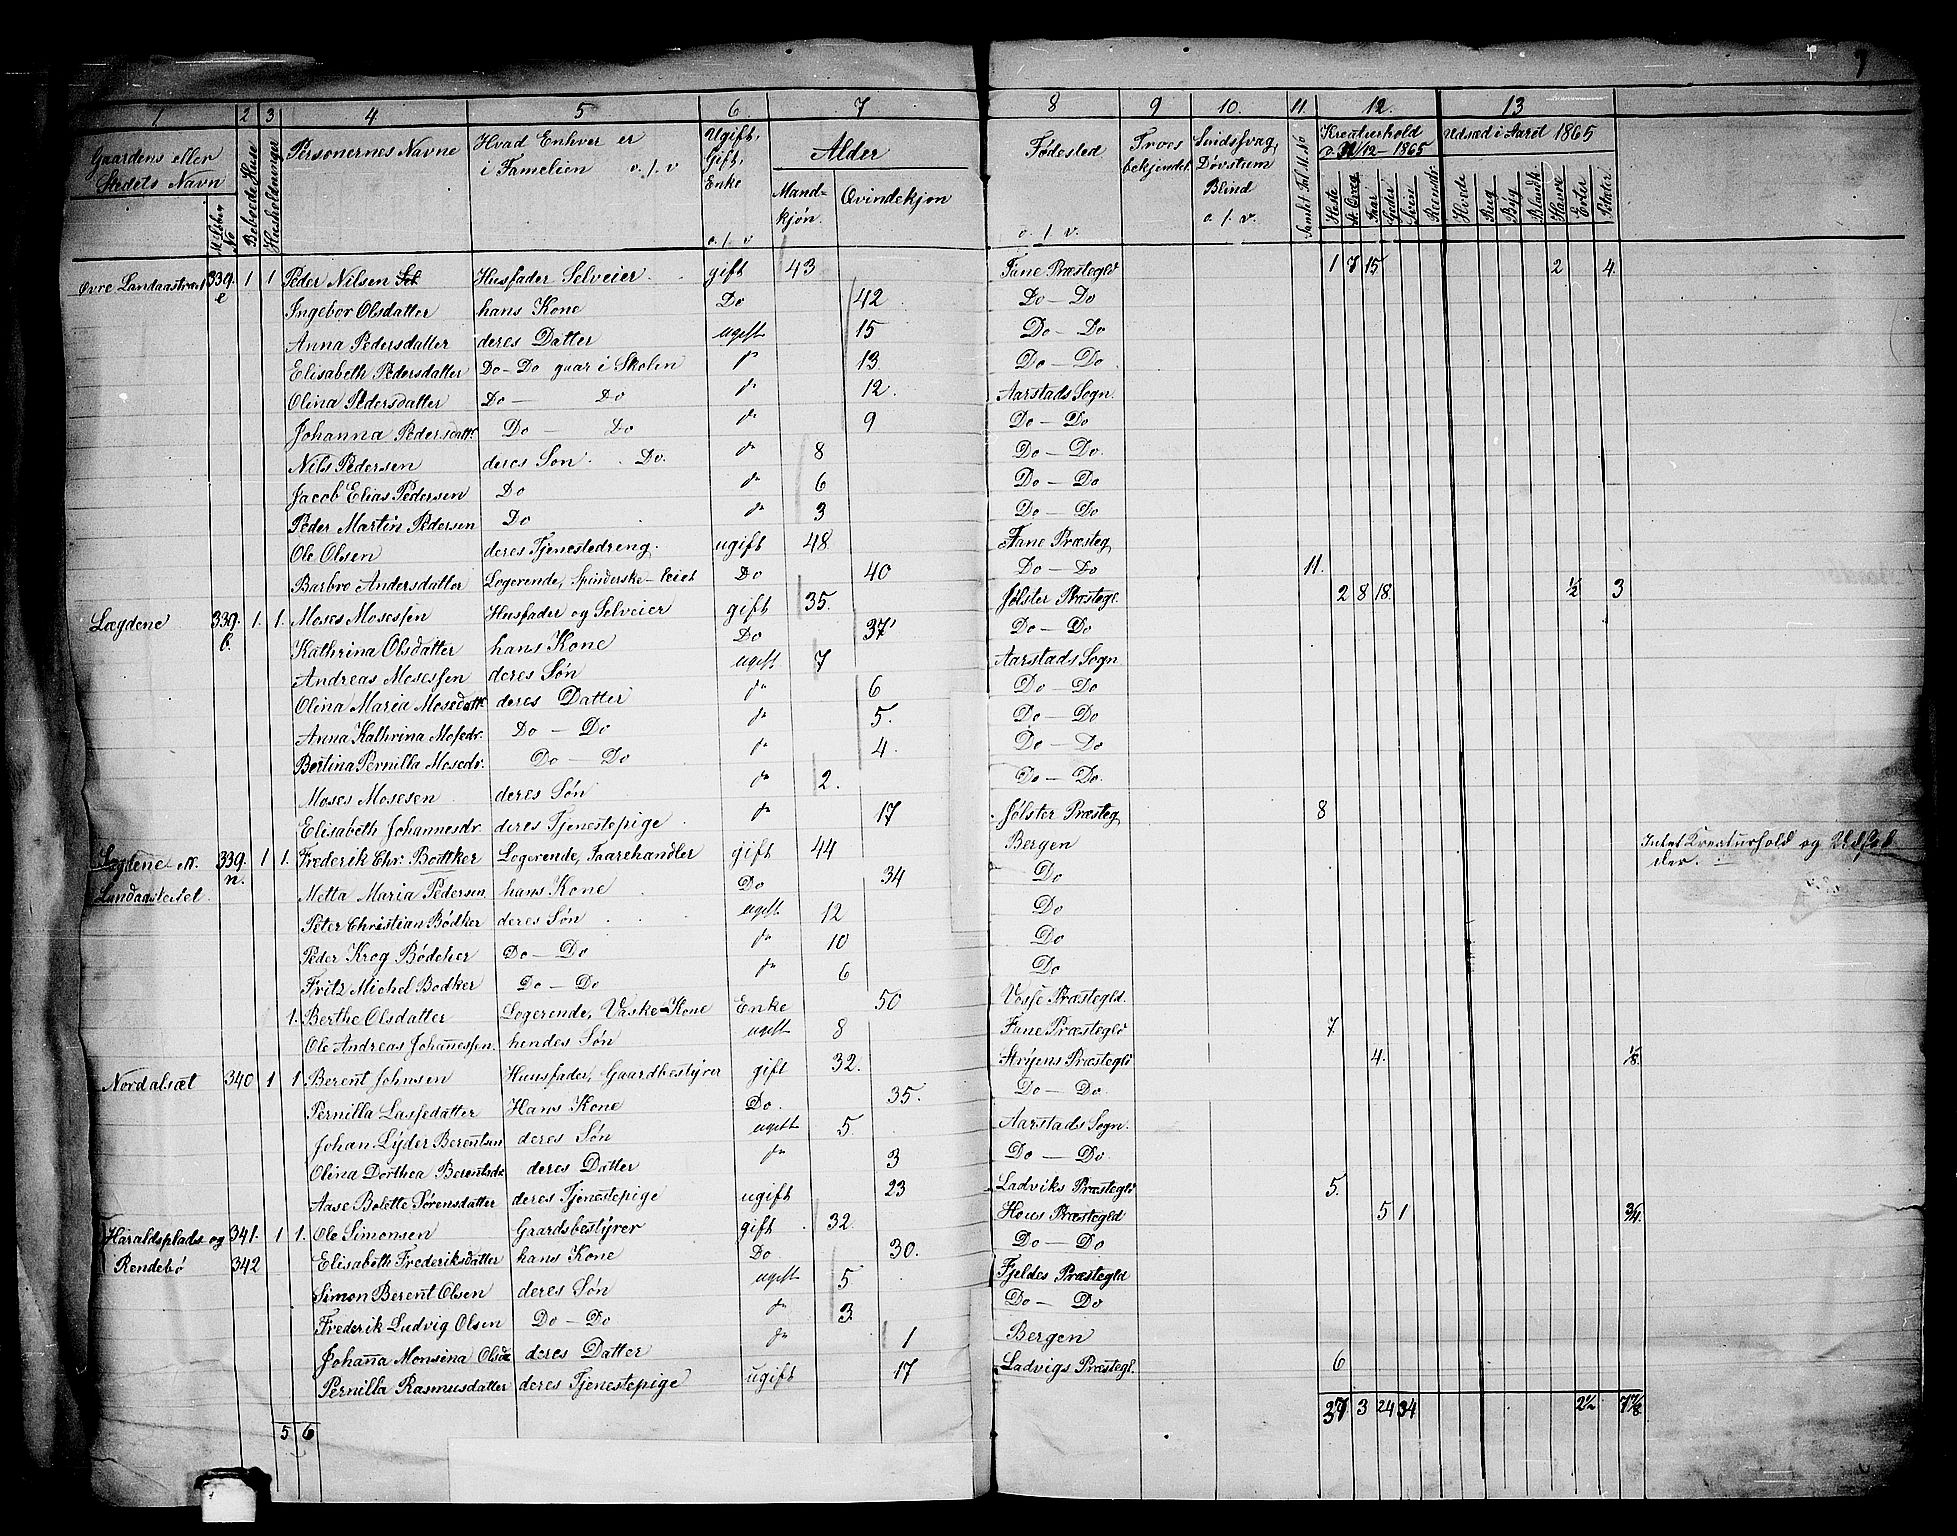 1 2 3 4 5 6 7 8 9 10. 11. 12. 13
Gaardens eller Stedets Navn | M. Løbe No | Beboede Huse | Husholdninger | Personernes Navne | Hvad Enhver er i Famelien o.s.v | Ugift, Gift, Enke o.s.v | Alder | Mandkjøn. | Qvindekjøn | Fødested o.s.v. | Troes bekjendel. | Sindssvag, Døvstum Blind o.s.v. | Kreaturhold d. 31/12 – 1865 | Heste | St. Qvæg | Faar | Gjeder | Sviin | Reensdr | Udsæd i Aaret 1865 | Hvede | Rug | Byg | Blandk. | Havre | Erter | Poteter
Øvre Landaastræt 339. e 1 1 Peder Nilsen Husfader Selveier. gift 43 Fane Præstegld 1 7 15 2 4.
Ingebor Olsdatter hans Kone Do 42. Do – Do
Anna Pedersdatter deres Datter ugift 15 Do – Do
Elisabeth Pedersdatter Do – Do gaar i Skolen do 13. Do – Do
Olina Pedersdatter Do – Do do 12. Aarstads Sogn.
Johanna Pedersdatt. Do – Do do 9 Do – Do
Nils Pedersen deres Søn. Do. do 8 Do – Do.
Jacob Elias Pedersen Do do 6 Do – Do
Peder Martin Pedersen Do do 3 Do – Do
Ole Olsen deres Tjenestedreng. ugift 48 Fane Præsteg
Barbro Andersdatter Logerende, Spinderske – Leiet Do 40 Do – Do 11.
Lægdene 339. b. 1. 1. Moses Mosessen Husfader og Selveier gift 35. Jølster Præstegl. 2 8 18. ½ 3
Kathrina Olsdatter hans Kone Do 37 Do – Do
Andreas Mosessen deres Søn ugift 7 Aarstads Sogn
Olina Maria Mosedatt. deres Datter do 6 Do – Do
Anna Kathrina Mosedr. Do – Do do 5. Do – Do
Bertina Pernilla Mosedr. Do – Do do 4. Do – Do
Moses Mosesen deres Søn do 2. Do – Do.
Elisabeth Johannesdr. deres Tjenestepige do 17 Jølster Præsteg 8
Lægdene N. 339. n. 1 1. Frederik Chr. Bødtker Logerende, Faarehandler gift 44 Bergen Intet Kreaturhold og Udsæd
Landaastedet Metta Maria Pedersen. hans Kone Do 34 Do
Peter Christian Bødker deres Søn ugift 12 Do
Peder Krog Bödcher Do – Do do 10 Do
Fritz Michel Bødker Do – Do do 6 Do
1. Berthe Olsdatter Logerende, Vaske-Kone Enke 50 Vosse Præstegld.
Ole Andreas Johannessen. hendes Søn ugift 8 Fane Præstegld 7
Nordalsæt 340 1 1 Berent Johnsen Huusfader, Gaardbestyrer gift 32. Stryens Præstegld 4. ⅛.
Pernilla Lassedatter Hans Kone Do. 35. Do – Do.
Johan Lyder Berentsen deres Søn ugift 5. Aarstads Sogn.
Olina Dorthea Berentsdr deres Datter do 3 Do – Do.
Aase Bolette Sørensdatter deres Tjenestepige ugift 23 Ladviks Præstegld 5.
Haraldsplads og 341. 1 1. Ole Simonsen Gaardsbestyrer gift 32. Hous Præstegld 5 1 ¾.
Rendebø 342 Elisabeth Frederiksdatter hans Kone Do 30. Do – Do
Simon Berent Olsen deres Søn ugift 5 Fjeldes Præstegld
Frederik Ludvig Olsen Do – Do do 3. Do – Do
Johanna Monsena Olsdr deres Datter do 1 Bergen
Pernilla Rasmusdatter deres Tjenestepige ugift 17 Ladvigs Præstegl. 6
37 3 24 34 2½ 7⅞
5 6